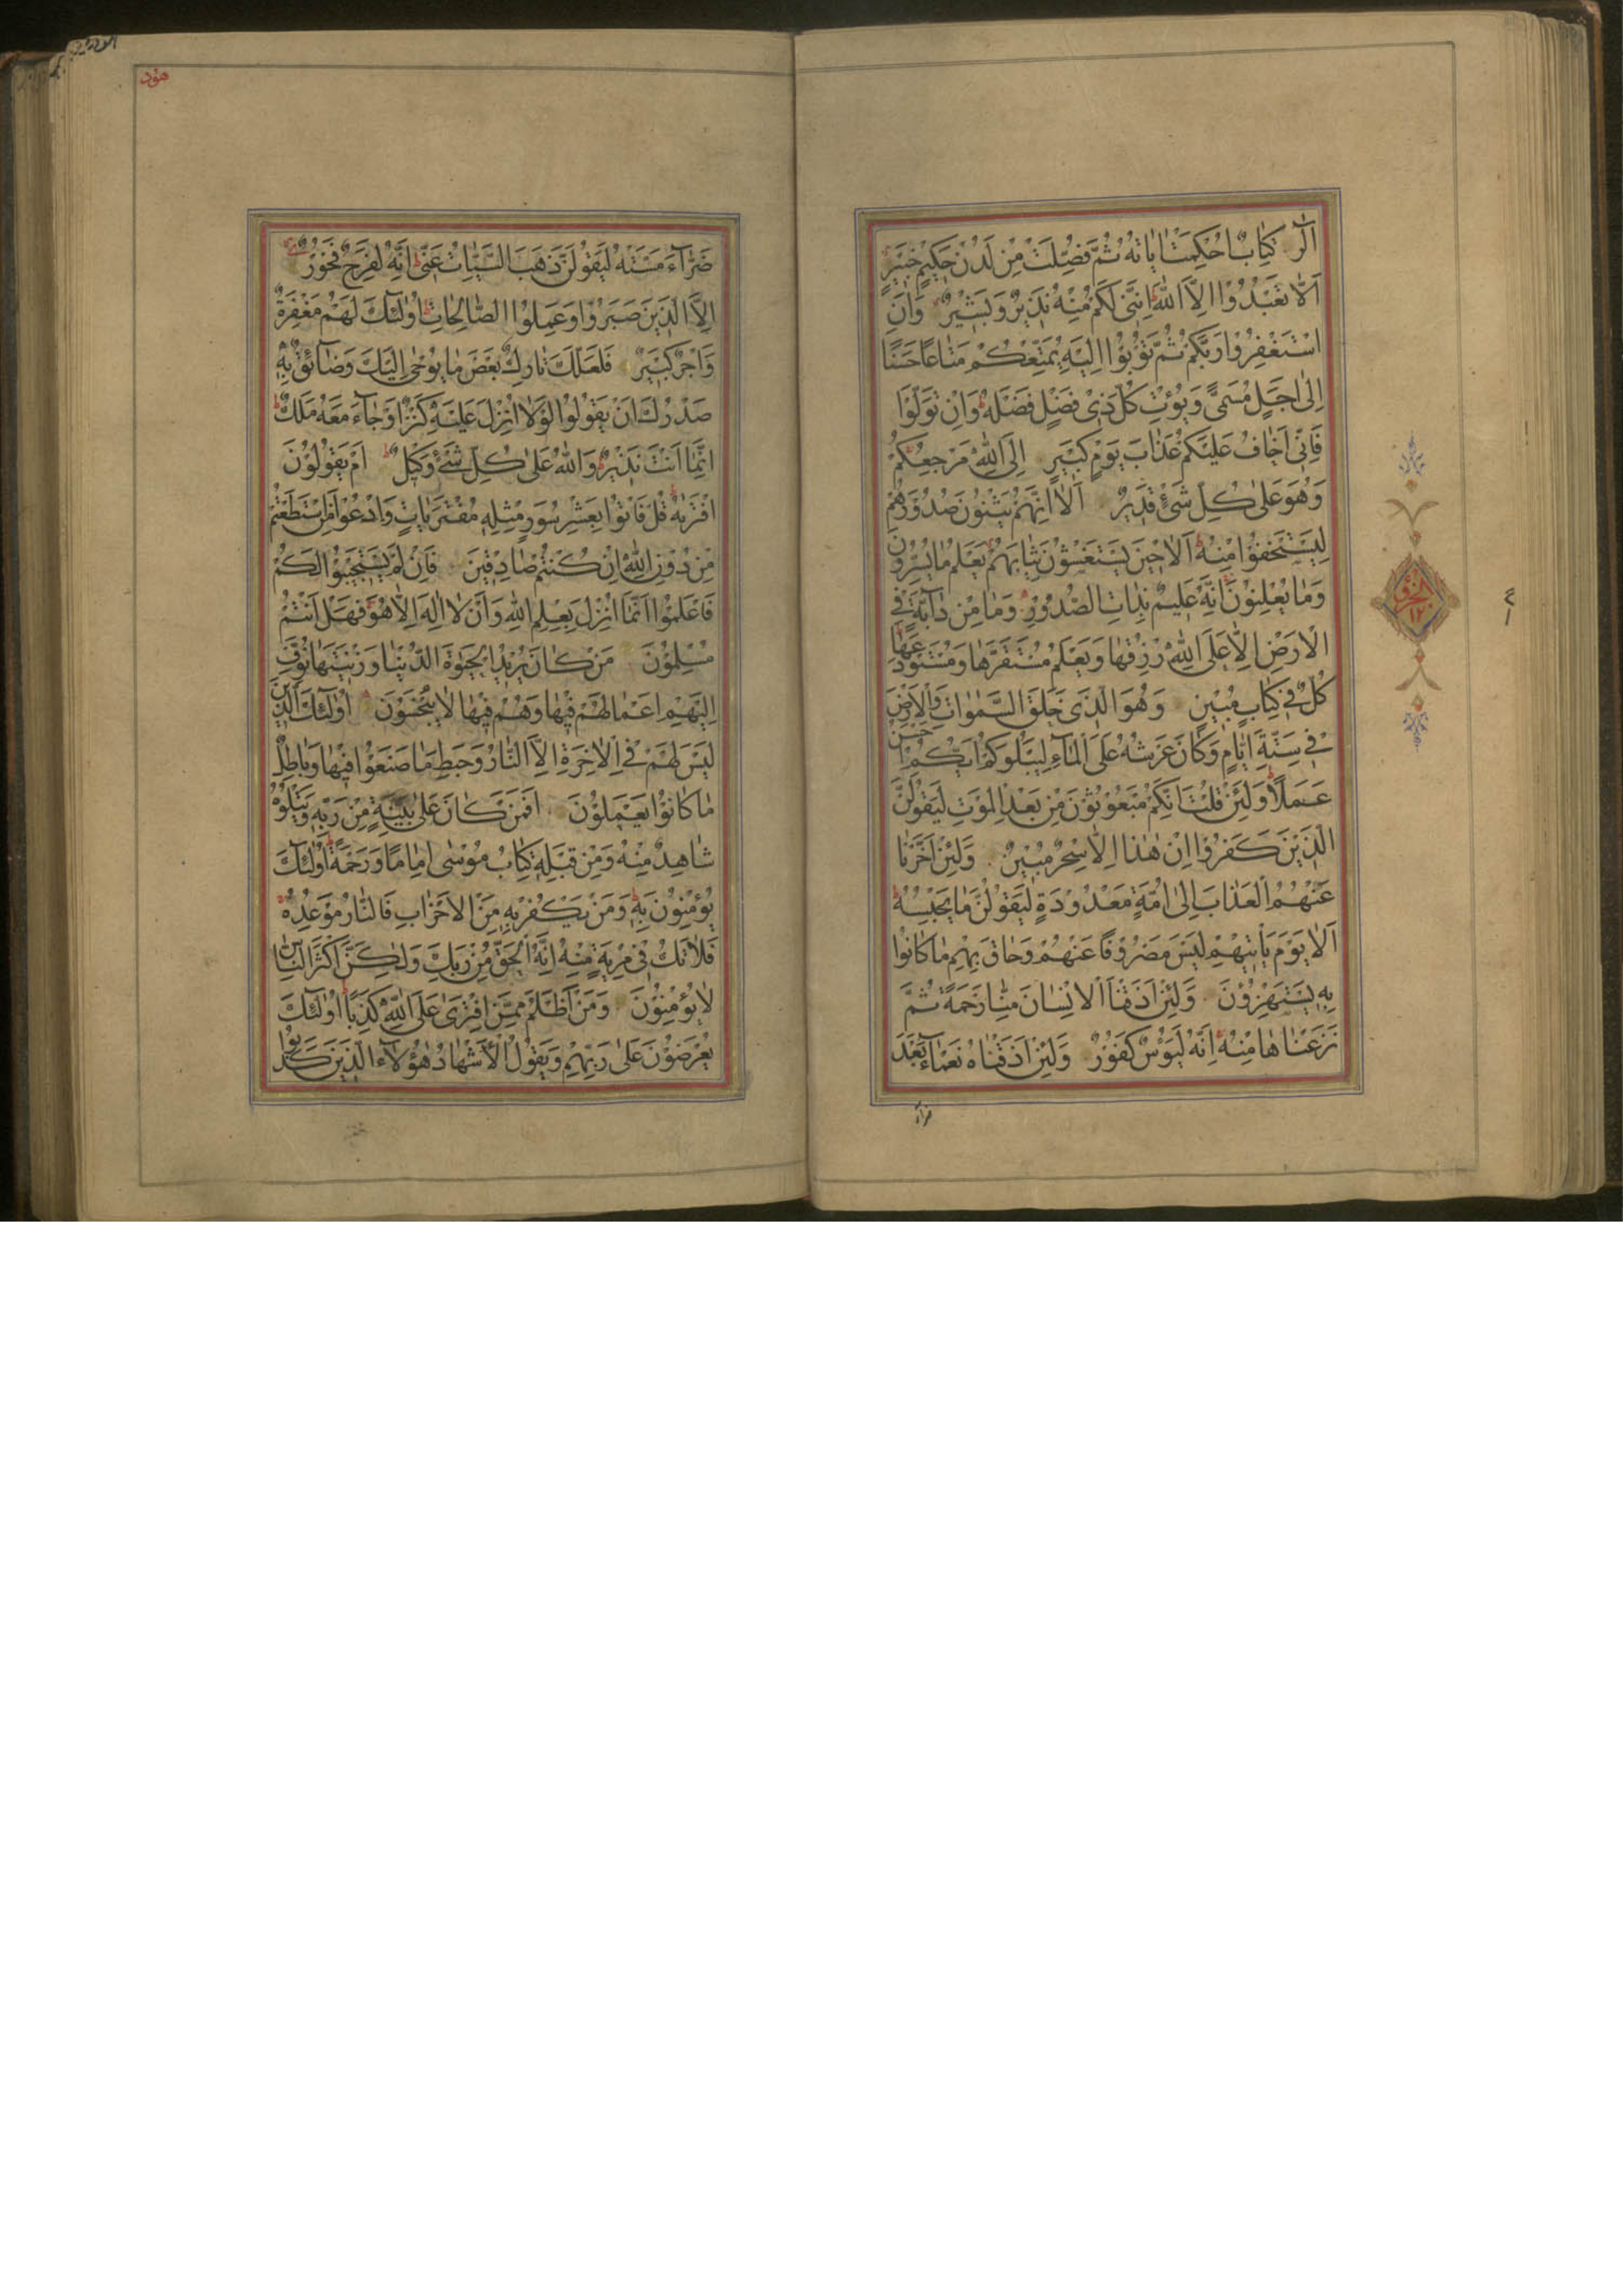 الٓرٰ كِتَابٌ اُحْكِمَتْ اٰيَاتُهُ ثُمَّ فُصِّلَتْ مِنْ لَدُنْ حَكِيمٍ خَبِيرٍ
اَلَّا تَعْبُدُوْا اِلَّا اللّٰهَ اِنَّنِى لَكُمْ مِنْهُ نَذِيرٌ وَبَشِيْرٌ وَاَنِ
اسْتَغْفِرُوْا رَبَّكُمْ ثُمَّ تُوْبُوْا اِلَيْهِ يُمَتِّعْكُمْ مَتَاعًا حَسَنًا
اِلٰى اَجَلٍ مُسَمًّى وَيُؤْتِ كُلَّ ذِىْ فَضْلٍ فَضْلَهُ وَاِنْ تَوَلَّوْا
فَاِنِّى اَخَافُ عَلَيْكُمْ عَذَابَ يَوْمٍ كَبِيرٍ اِلَى اللّٰهِ مَرْجِعُكُمْ
وَهُوَ عَلٰى كُلِّ شَىْءٍ قَدِيرٌ اَلَا اِنَّهُمْ يَثْنُوْنَ صُدُوْرَهُمْ
لِيَسْتَخْفُوْا مِنْهُ اَلَا حِيْنَ يَسْتَغْشَوْنَ ثِيَابَهُمْ يَعْلَمُ مَا يُسِرُّوْنَ
وَمَا يُعْلِنُوْنَ اِنَّهُ عَلِيمٌ بِذَاتِ الصُّدُوْرِ وَمَا مِنْ دَآبَّةٍ فِى
الْاَرْضِ اِلَّا عَلَى اللّٰهِ رِزْقُهَا وَيَعْلَمُ مُسْتَقَرَّهَا وَمُسْتَوْدَعَهَا
كُلٌّ فِى كِتَابٍ مُبِيْنٍ وَهُوَ الَّذِى خَلَقَ السَّمٰوَاتِ وَالْاَرْضَ
فِى سِتَّةِ اَيَّامٍ وَكَانَ عَرْشُهُ عَلَى الْمَآءِ لِيَبْلُوَكُمْ اَيُّكُمْ اَحْسَنُ
عَمَلًا وَلَئِنْ قُلْتَ اِنَّكُمْ مَبْعُوْثُوْنَ مِنْ بَعْدِ الْمَوْتِ لَيَقُوْلَنَّ
الَّذِيْنَ كَفَرُوْا اِنْ هٰذَا اِلَّا سِحْرٌ مُبِيْنٌ وَلَئِنْ اَخَّرْنَا
عَنْهُمُ الْعَذَابَ اِلٰى اُمَّةٍ مَعْدُوْدَةٍ لَيَقُوْلُنَّ مَا يَحْبِسُهُ
اَلَا يَوْمَ يَاْتِيْهِمْ لَيْسَ مَصْرُوْفًا عَنْهُمْ وَحَاقَ بِهِمْ مَا كَانُوْا
بِهِ يَسْتَهْزِؤُنَ وَلَئِنْ اَذَقْنَا الْاِنْسَانَ مِنَّا رَحْمَةً ثُمَّ
نَزَعْنَاهَا مِنْهُ اِنَّهُ لَيَؤُسٌ كَفُوْرٌ وَلَئِنْ اَذَقْنَاهُ نَعْمَآءَ بَعْدَ
ضرآء
الحزب
١٢
هود
ضَرَّآءَ مَسَّتْهُ لَيَقُوْلَنَّ ذَهَبَ السَّيِّاٰتُ عَنِّى اِنَّهُ لَفَرِحٌ فَخُوْرٌ
اِلَّا الَّذِيْنَ صَبَرُوْا وَعَمِلُوا الصَّالِحَاتِ اُولٰٓئِكَ لَهُمْ مَغْفِرَةٌ
وَاَجْرٌ كَبِيْرٌ فَلَعَلَّكَ تَارِكٌ بَعْضَ مَا يُوْحٰى اِلَيْكَ وَضَآئِقٌ بِهِ
صَدْرُكَ اَنْ يَقُوْلُوْا لَوْلَا اُنْزِلَ عَلَيْهِ كَنْزٌ اَوْ جَآءَ مَعَهُ مَلَكٌ
اِنَّمَا اَنْتَ نَذِيْرٌ وَاللّٰهُ عَلٰى كُلِّ شَىْءٍ وَكِيْلٌ اَمْ يَقُوْلُوْنَ
افْتَرٰيهُ قُلْ فَاْتُوْا بِعَشْرِ سُوَرٍ مِثْلِهِ مُفْتَرَيَاتٍ وَادْعُوْا مَنِ اسْتَطَعْتُمْ
مِنْ دُوْنِ اللّٰهِ اِنْ كُنْتُمْ صَادِقِيْنَ فَاِنْ لَمْ يَسْتَجِيْبُوْا لَكُمْ
فَاعْلَمُوْا اَنَّمَا اُنْزِلَ بِعِلْمِ اللّٰهِ وَاَنْ لَا اِلٰهَ اِلَّا هُوَ فَهَلْ اَنْتُمْ
مُسْلِمُوْنَ مَنْ كَانَ يُرِيْدُ الْحَيٰوةَ الدُّنْيَا وَزِيْنَتَهَا نُوَفِّ
اِلَيْهِمْ اَعْمَالَهُمْ فِيْهَا وَهُمْ فِيْهَا لَا يُبْخَسُوْنَ اُولٰٓئِكَ الَّذِيْنَ
لَيْسَ لَهُمْ فِى الْاٰخِرَةِ اِلَّا النَّارُ وَحَبِطَ مَا صَنَعُوْا فِيْهَا وَبَاطِلٌ
مَا كَانُوْا يَعْمَلُوْنَ اَفَمَنْ كَانَ عَلٰى بَيِّنَةٍ مِنْ رَبِّهِ وَيَتْلُوْهُ
شَاهِدٌ مِنْهُ وَمِنْ قَبْلِهِ كِتَابُ مُوْسٰى اِمَامًا وَرَحْمَةً اُولٰٓئِكَ
يُؤْمِنُوْنَ بِهِ وَمَنْ يَكْفُرْ بِهِ مِنَ الْاَحْزَابِ فَالنَّارُ مَوْعِدُهُ
فَلَا تَكُ فِى مِرْيَةٍ مِنْهُ اِنَّهُ الْحَقُّ مِنْ رَبِّكَ وَلٰكِنَّ اَكْثَرَ النَّاسِ
لَا يُؤْمِنُوْنَ وَمَنْ اَظْلَمُ مِمَّنِ افْتَرٰى عَلَى اللّٰهِ كَذِبًا اُولٰٓئِكَ
يُعْرَضُوْنَ عَلٰى رَبِّهِمْ وَيَقُوْلُ الْاَشْهَادُ هٰؤُلَآءِ الَّذِيْنَ كَذَبُوْا